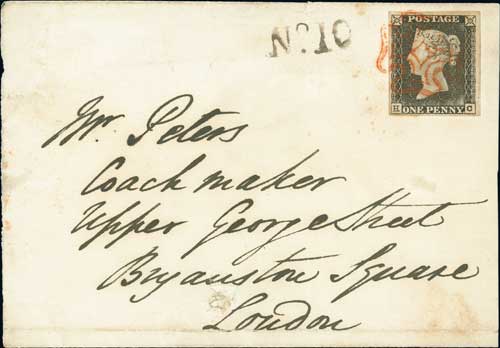 No. 10
POSTAGE
H C
ONE PENNY
Mr. Peters
Coach maker
Upper George Street
Bryanston Square
London